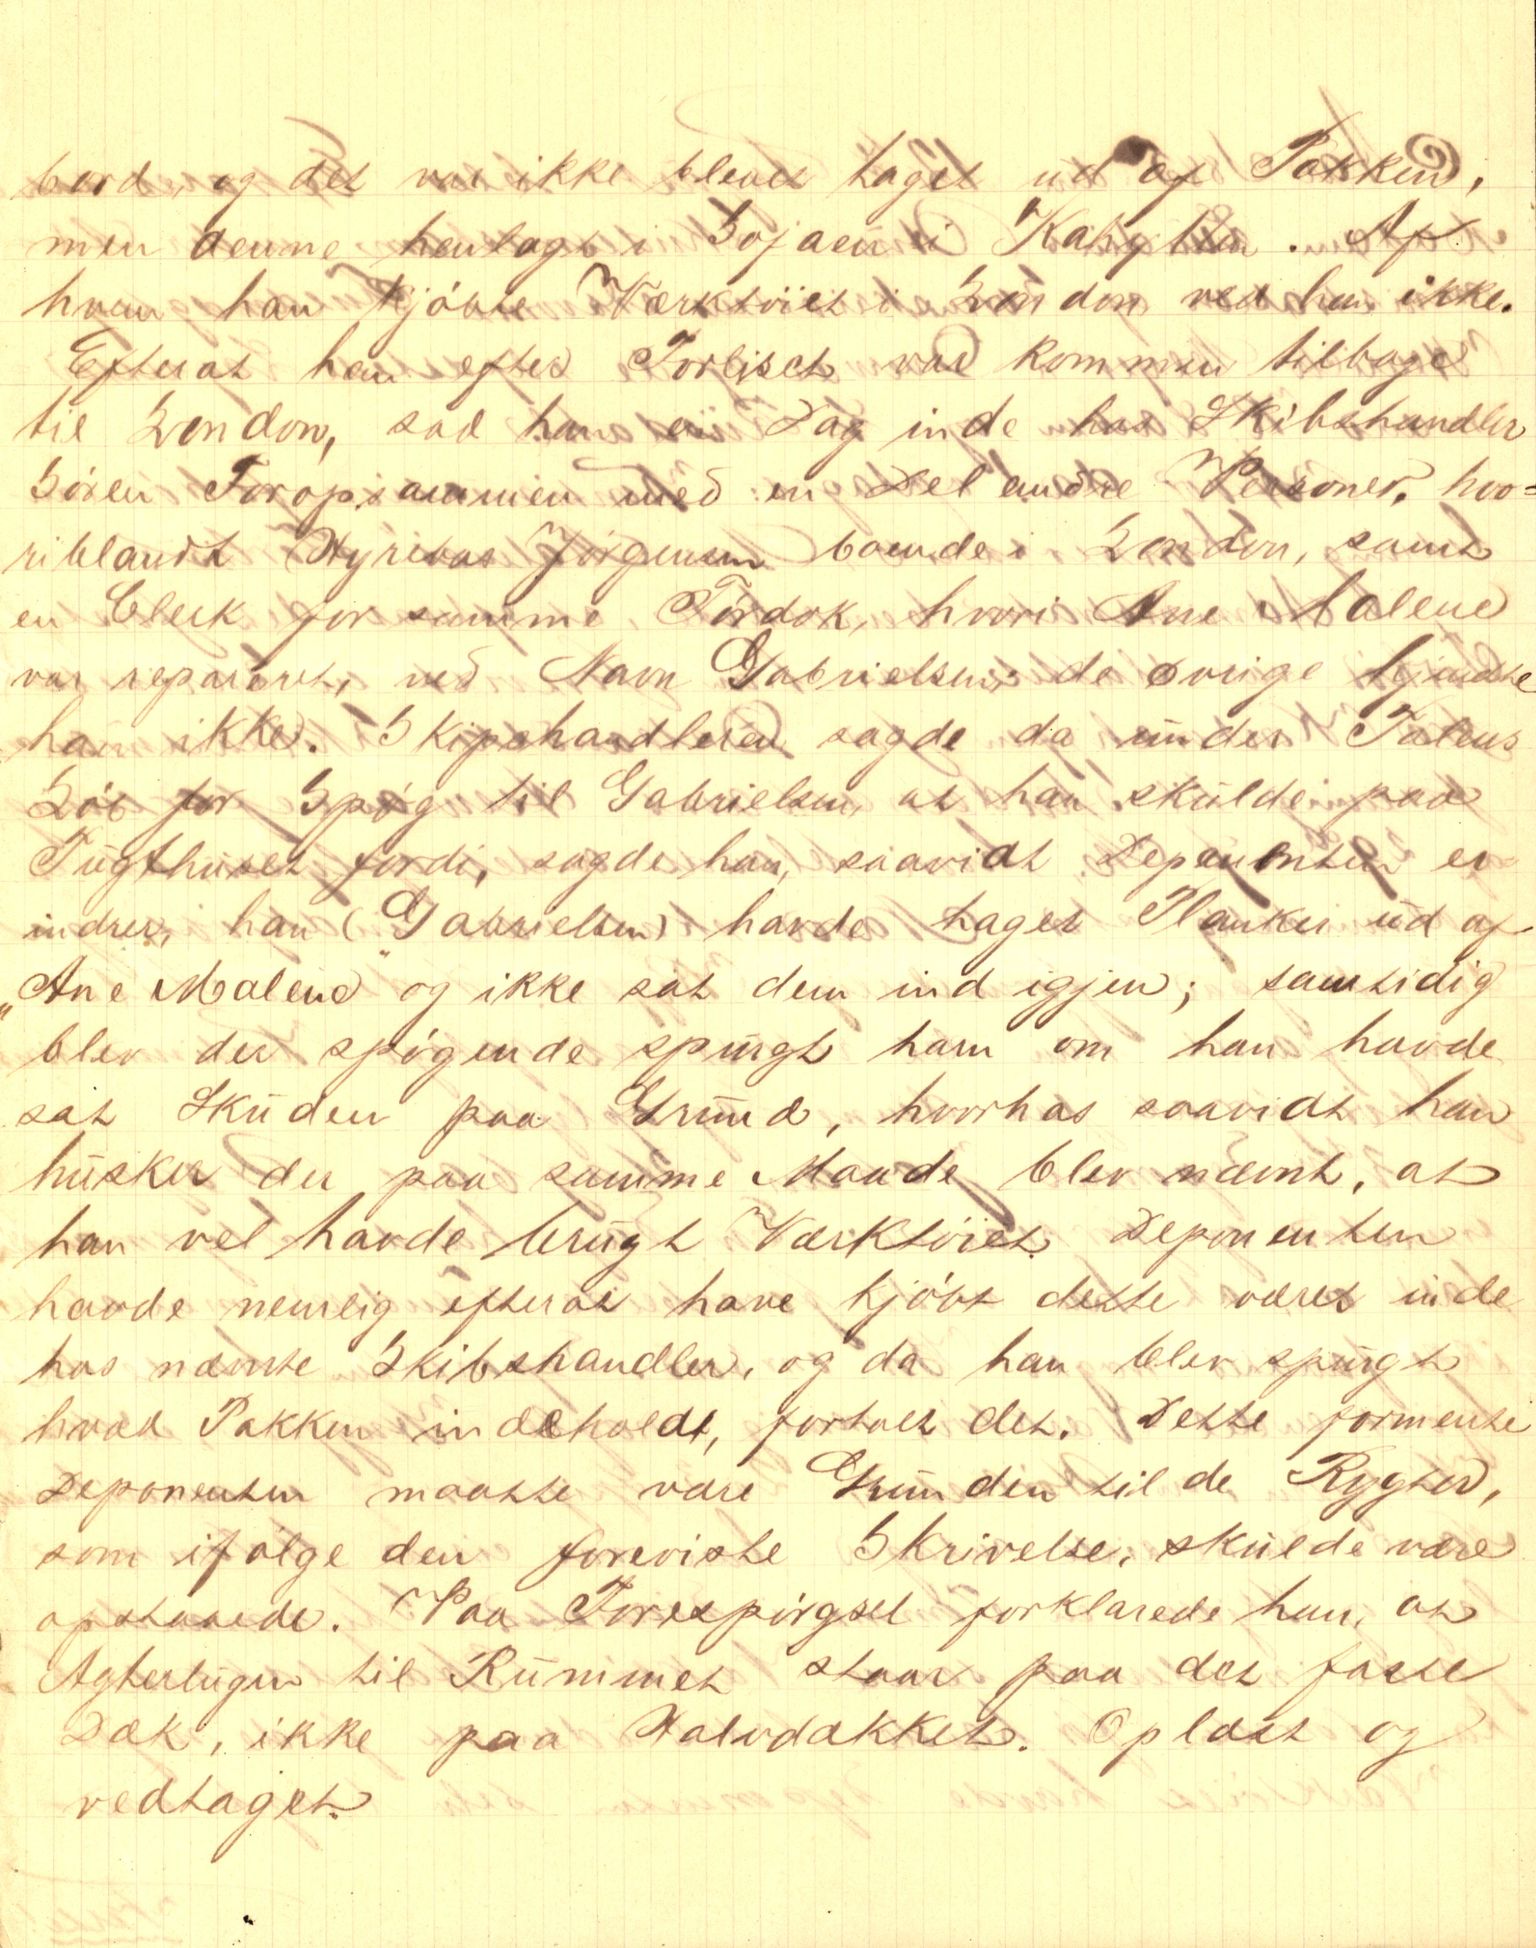 bord, og det var ikke blevet taget ud af Pakken,
men denne henlagt i Sojaen i Kahytten. Af
hvem han kjöbte Værktöiet i London ved han ikke.
Efterat han efter Forliset var kommen tilbage
til London, sad han en Dag inde hos Skibshandler
Sören sammen med en Del andre Personer, hvo=
riblandt Hyrebas Jörgensen boende i London, samt
en Clerk for samme Tördok, hvori Ane Malene
var repareret, ved Navn Gabrielsen; de övrige kjendte
han ikke. Skipshandleren sagde da under Talens
Löb for Spög til Gabrielsen, at han skulde paa
Tugthuset fordi, sagde han, saavidt Deponenten er
indrer, han (Gabrielsen) havde taget Planker ud af
„Ane Malene" og ikke sat dem ind igjen; samtidig
blev der spögende spurgt ham om han havde
sat Skuden paa Grund, hvorhos saavidt han
husker der paa samme Maade blev nævnt, at
han vel havde brugt Værktöiet. Deponenten
havde nemlig efterat have kjöbt dette været inde
hos nævnte Skibshandler, og da han blev spurgt
hvad Pakken indeholdt, fortalt det. Dette formente
Deponenten maatte være Grunden til de Rygter,
som ifölge den foreviste Skrivelse, skulde være
opstaaede. Paa Forespörgsel forklarede han, at
Agterlugen til Rummet staar paa det faste
Dæk, ikke paa Halvdækket. Oplæst og
vedtaget.